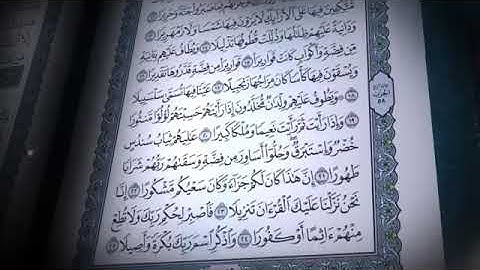 مُّتَّكِئِينَ فِيهَا عَلَى ٱلْأَرَآئِكِ لَا يَرَوْنَ فِيهَا شَمْسًا وَلَا زَمْهَرِيرًا ١٣
وَدَانِيَةً عَلَيْهِمْ ظِلَٰلُهَا وَذُلِّلَتْ قُطُوفُهَا تَذْلِيلًا ١٤ وَيُطَافُ عَلَيْهِم بِـَٔانِيَةٍ
مِّن فِضَّةٍ وَأَكْوَابٍ كَانَتْ قَوَارِيرَا۠ ١٥ قَوَارِيرَا۟ مِن فِضَّةٍ قَدَّرُوهَا تَقْدِيرًا ١٦
وَيُسْقَوْنَ فِيهَا كَأْسًا كَانَ مِزَاجُهَا زَنجَبِيلًا ١٧ عَيْنًا فِيهَا تُسَمَّىٰ سَلْسَبِيلًا
١٨ وَيَطُوفُ عَلَيْهِمْ وِلْدَٰنٌ مُّخَلَّدُونَ إِذَا رَأَيْتَهُمْ حَسِبْتَهُمْ لُؤْلُؤًا مَّنثُورًا
١٩ وَإِذَا رَأَيْتَ ثَمَّ رَأَيْتَ نَعِيمًا وَمُلْكًا كَبِيرًا ٢٠ عَٰلِيَهُمْ ثِيَابُ سُندُسٍ
خُضْرٌ وَإِسْتَبْرَقٌ وَحُلُّوٓا۟ أَسَاوِرَ مِن فِضَّةٍ وَسَقَىٰهُمْ رَبُّهُمْ شَرَابًا
طَهُورًا ٢١ إِنَّ هَٰذَا كَانَ لَكُمْ جَزَآءً وَكَانَ سَعْيُكُم مَّشْكُورًا ٢٢ إِنَّا
نَحْنُ نَزَّلْنَا عَلَيْكَ ٱلْقُرْءَانَ تَنزِيلًا ٢٣ فَٱصْبِرْ لِحُكْمِ رَبِّكَ وَلَا تُطِعْ
مِنْهُمْ ءَاثِمًا أَوْ كَفُورًا ٢٤ وَٱذْكُرِ ٱسْمَ رَبِّكَ بُكْرَةً وَأَصِيلًا ٢٥